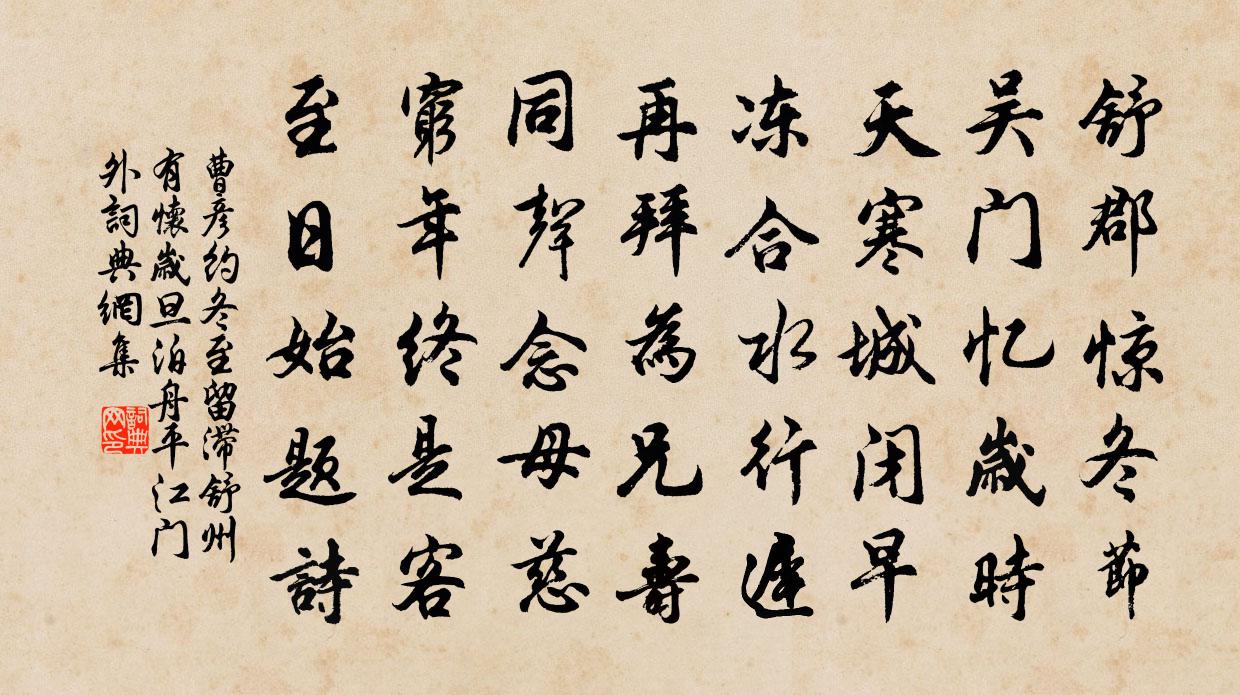 舒郡惊冬節
吴门忆歲時
天寒城闭早
冻合水行遲
再拜為兄壽
同聲念母慈
窮年終是客
至日始题詩
曹彦约冬至留滯舒州
有懷歲旦泊舟平江门
外詞典網集
詞典网印